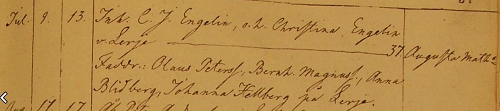 Jul. 9. 13. Inh. C. J. Engelin, o. h. Christina Engelin
v. Lerje 37. Augusta Math
Faddr.: Olaus Peterss., Bernh. Magnuss., Anna
Blidberg, Johanna Hellberg på Lerje.
17. 17.